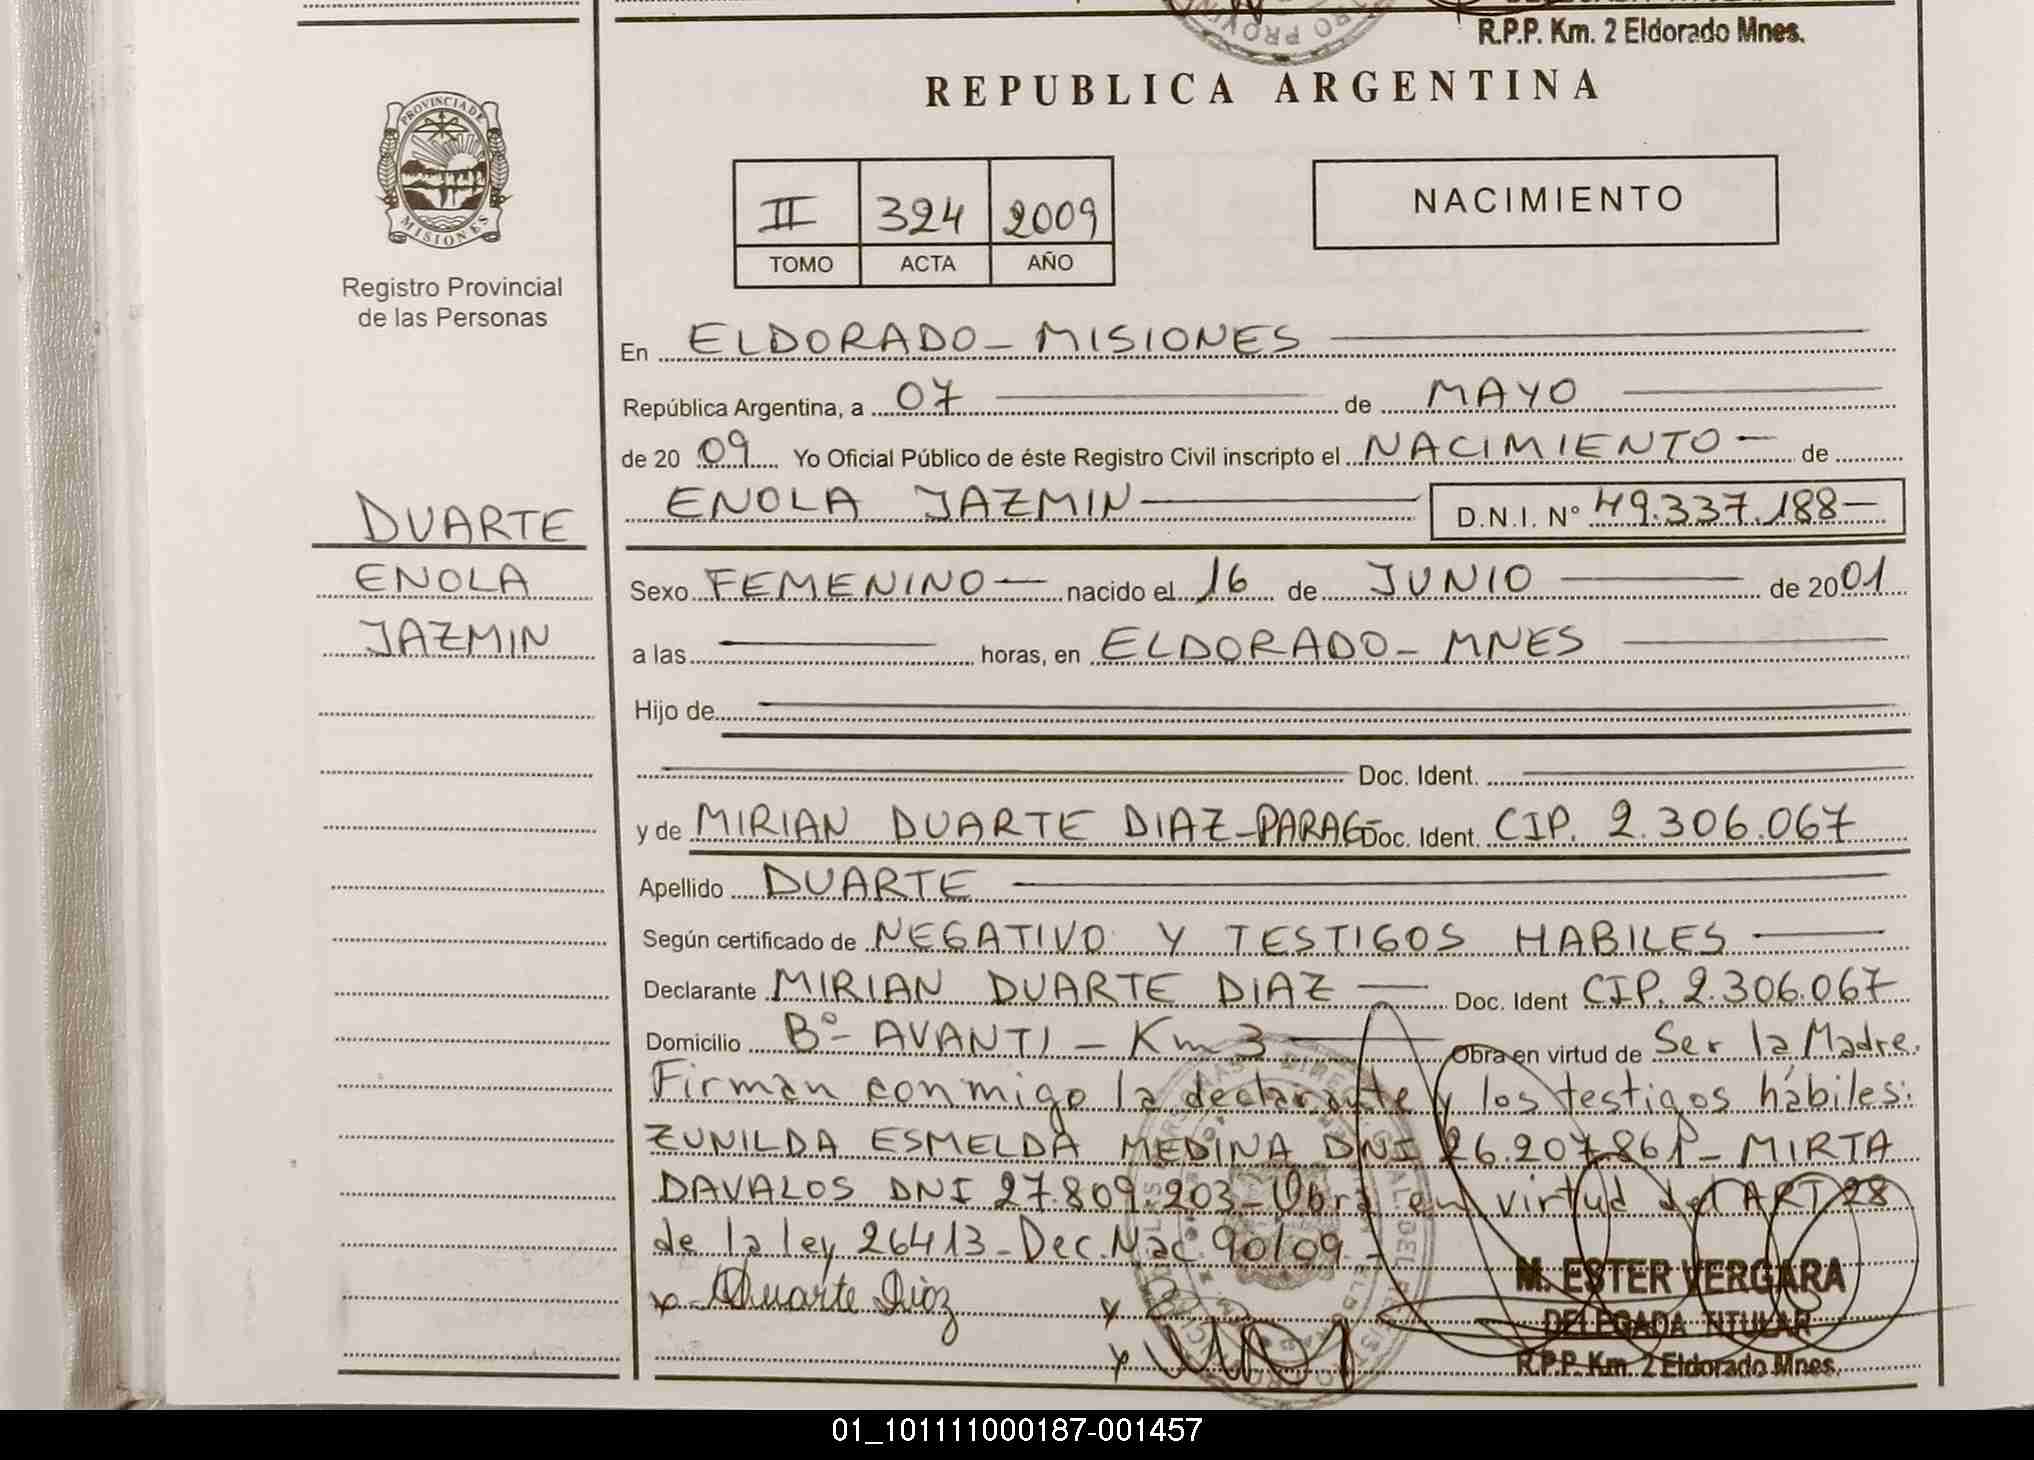 R.P.P. Km. 2 Eldorado Mnes.
REPUBLICA ARGENTINA
PROVINCIA DE
MISIONES
Registro Provincial
de las Personas
II 324 2009
TOMO ACTA AÑO
NACIMIENTO
En ELDORADO - MISIONES
República Argentina, a 07 de MAYO
de 20 09 Yo Oficial Público de éste Registro Civil inscripto el NACIMIENTO - de
ENOLA JAZMIN D.N.I. N° 49.337.188-
DUARTE
ENOLA
JAZMIN
Sexo FEMENINO - nacido el 16 de JUNIO de 2001
a las horas, en ELDORADO - MNES
Hijo de
Doc. Ident.
y de MIRIAN DUARTE DIAZ - PARAG Doc. Ident. CIP. 2.306.067
Apellido DUARTE
Según certificado de NEGATIVO Y TESTIGOS HABILES
Declarante MIRIAN DUARTE DIAZ - Doc. Ident CIP. 2.306.067
Domicilio B°- AVANTI - Km 3 Obra en virtud de Ser la Madre.
Firman conmigo la declarante y los testigos hábiles:
ZUNILDA ESMELDA MEDINA DNI 26.207.861 - MIRTA
DAVALOS DNI 27.809.203 - Obra en virtud del ART 28
de la ley 26413 - Dec. Nac 90/09 -
x Duarte Diaz x
x
M. ESTER VERGARA
DELEGADA TITULAR
R.P.P. Km. 2 Eldorado Mnes.
01_101111000187-001457